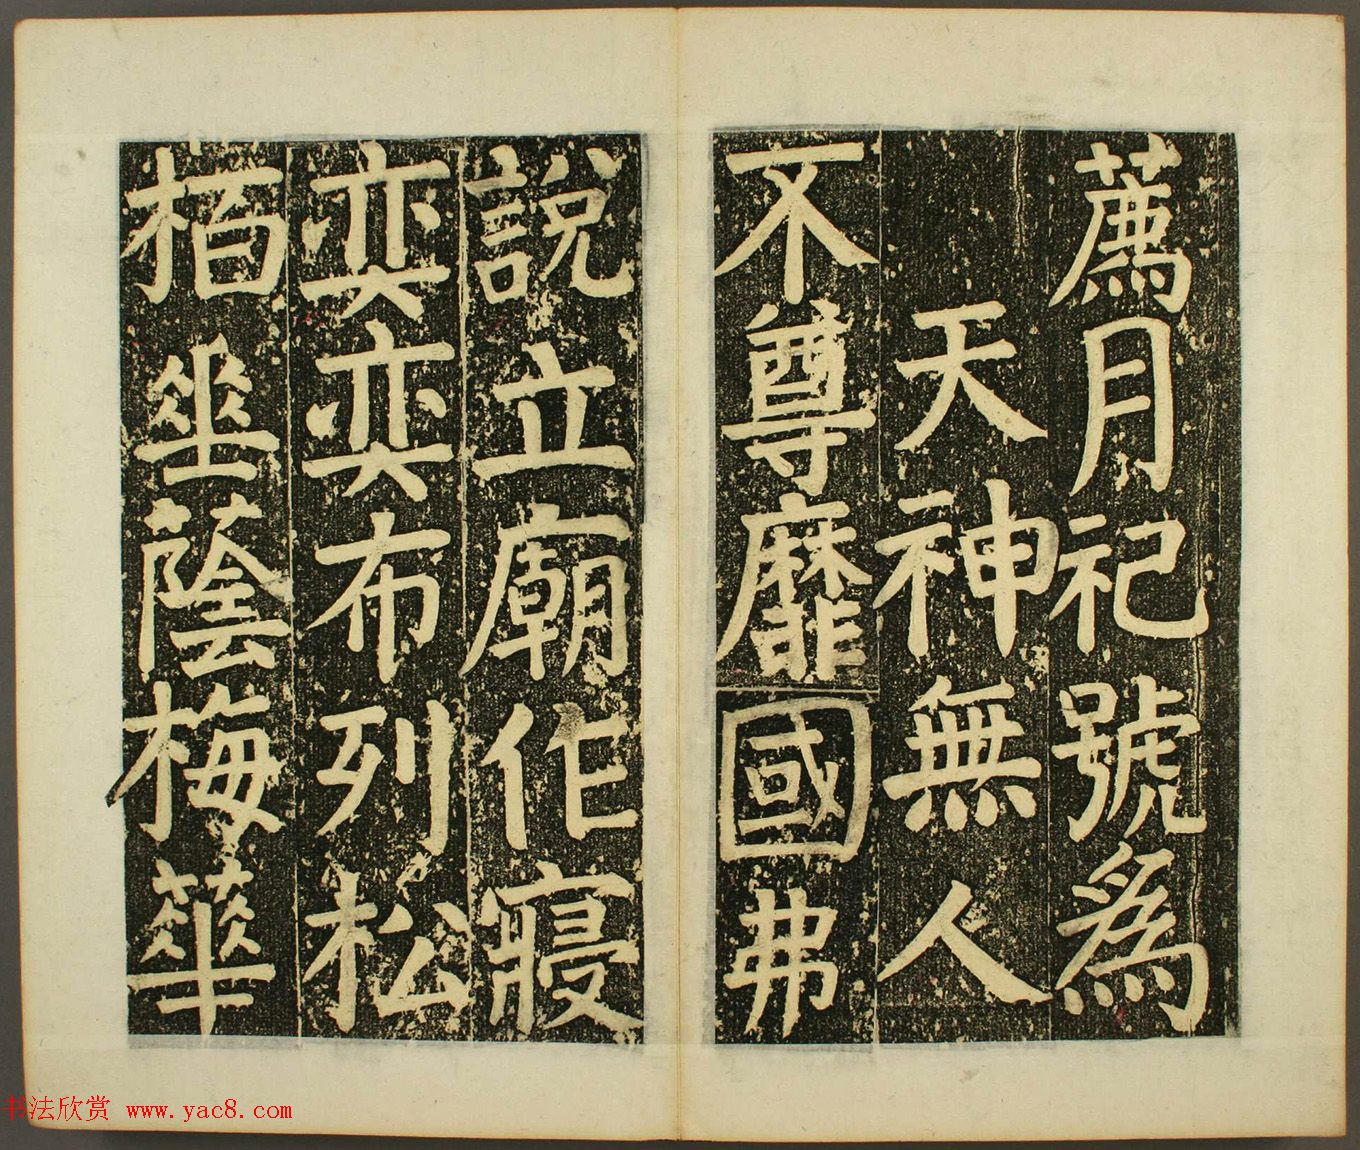 薦月祀號爲
天神無人
不尊靡國弗
說立廟作寢
奕奕布列松
栢坐蔭梅華
书法欣赏 www.yac8.com